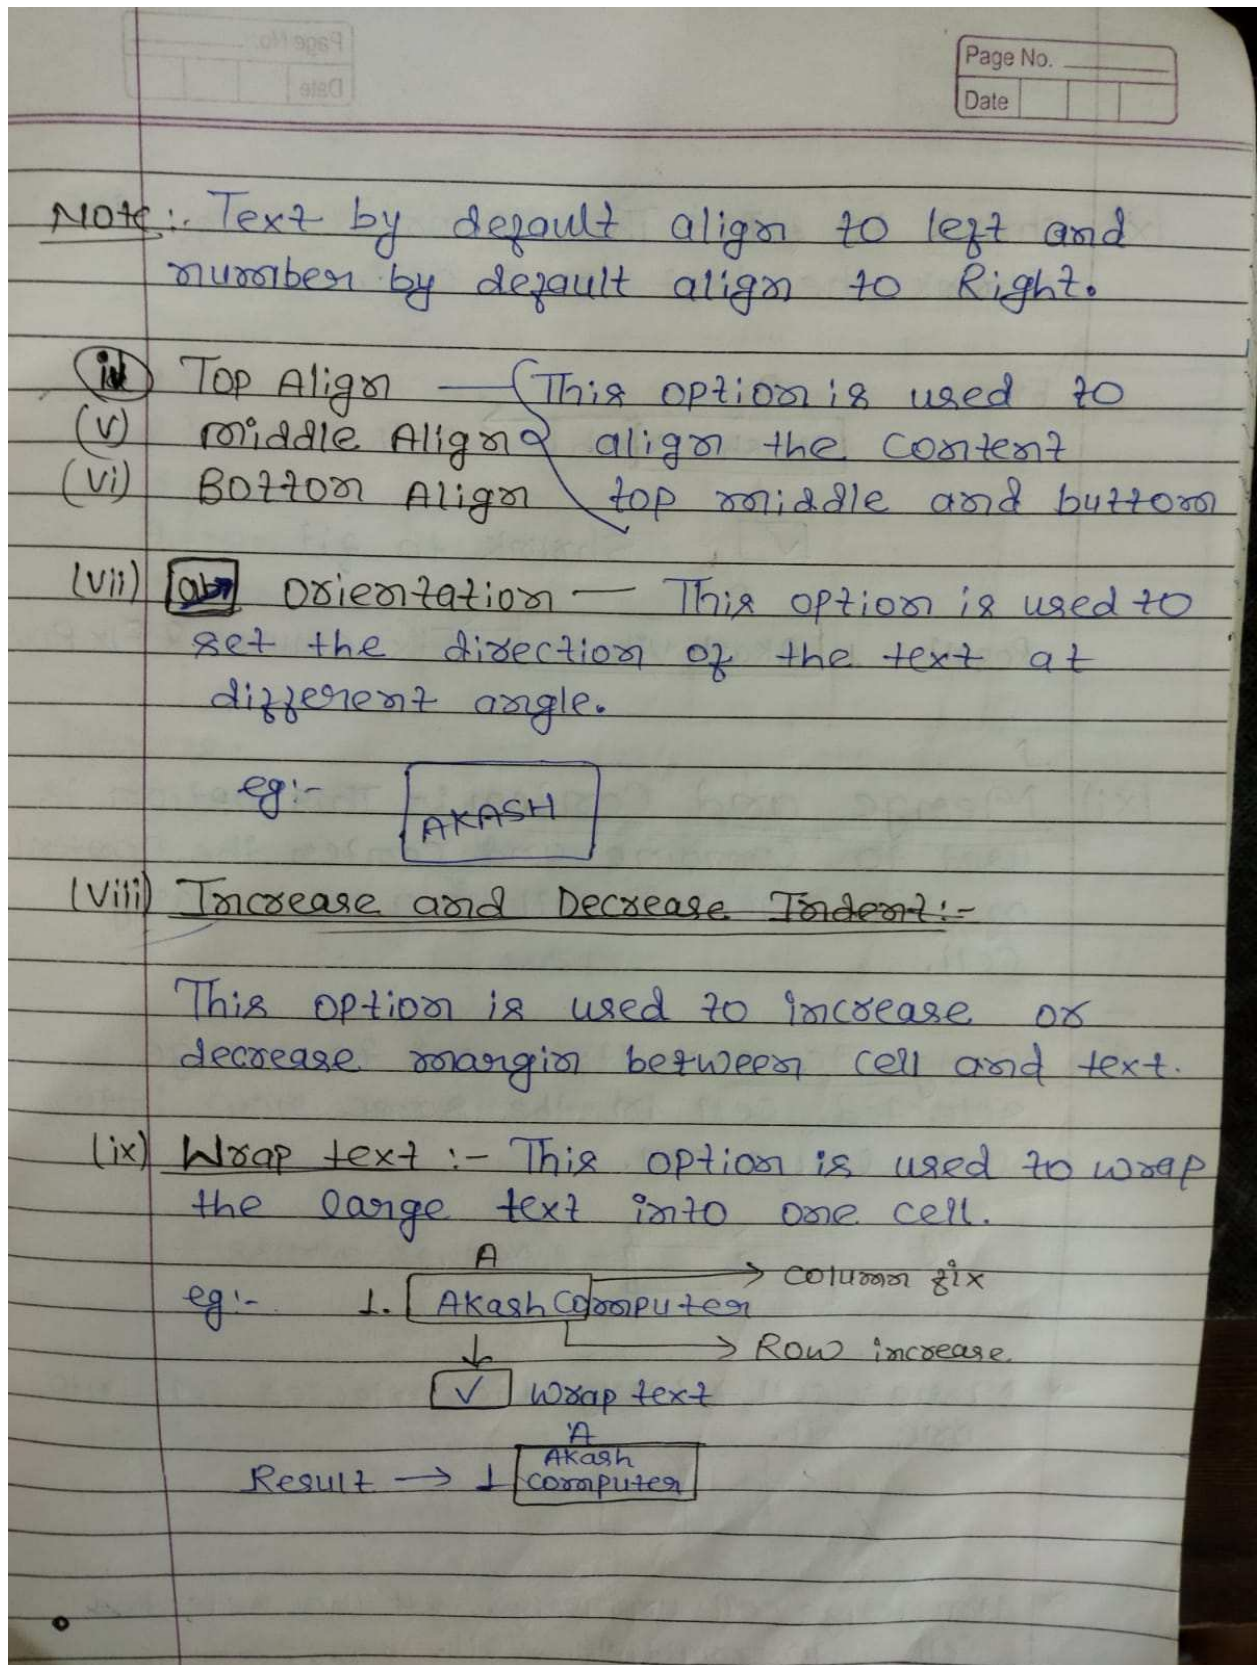 Page No.
Date
Note:- Text by default align to left and
number by default align to Right.
(iv) Top Align — This option is used to
(v) middle Align align the content
(vi) Bottom Align top middle and buttom
(vii) ab Orientation — This option is used to
set the direction of the text at
different angle.
eg:- AKASH
(viii) Increase and Decrease Indent:-
This option is used to increase or
decrease margin between cell and text.
(ix) Wrap text :- This option is used to wrap
the large text into one cell.
A
→ column fix
eg:- 1. Akash Computer
↓ → Row increase.
✓ Wrap text
A
Akash
Result → 1 Computer